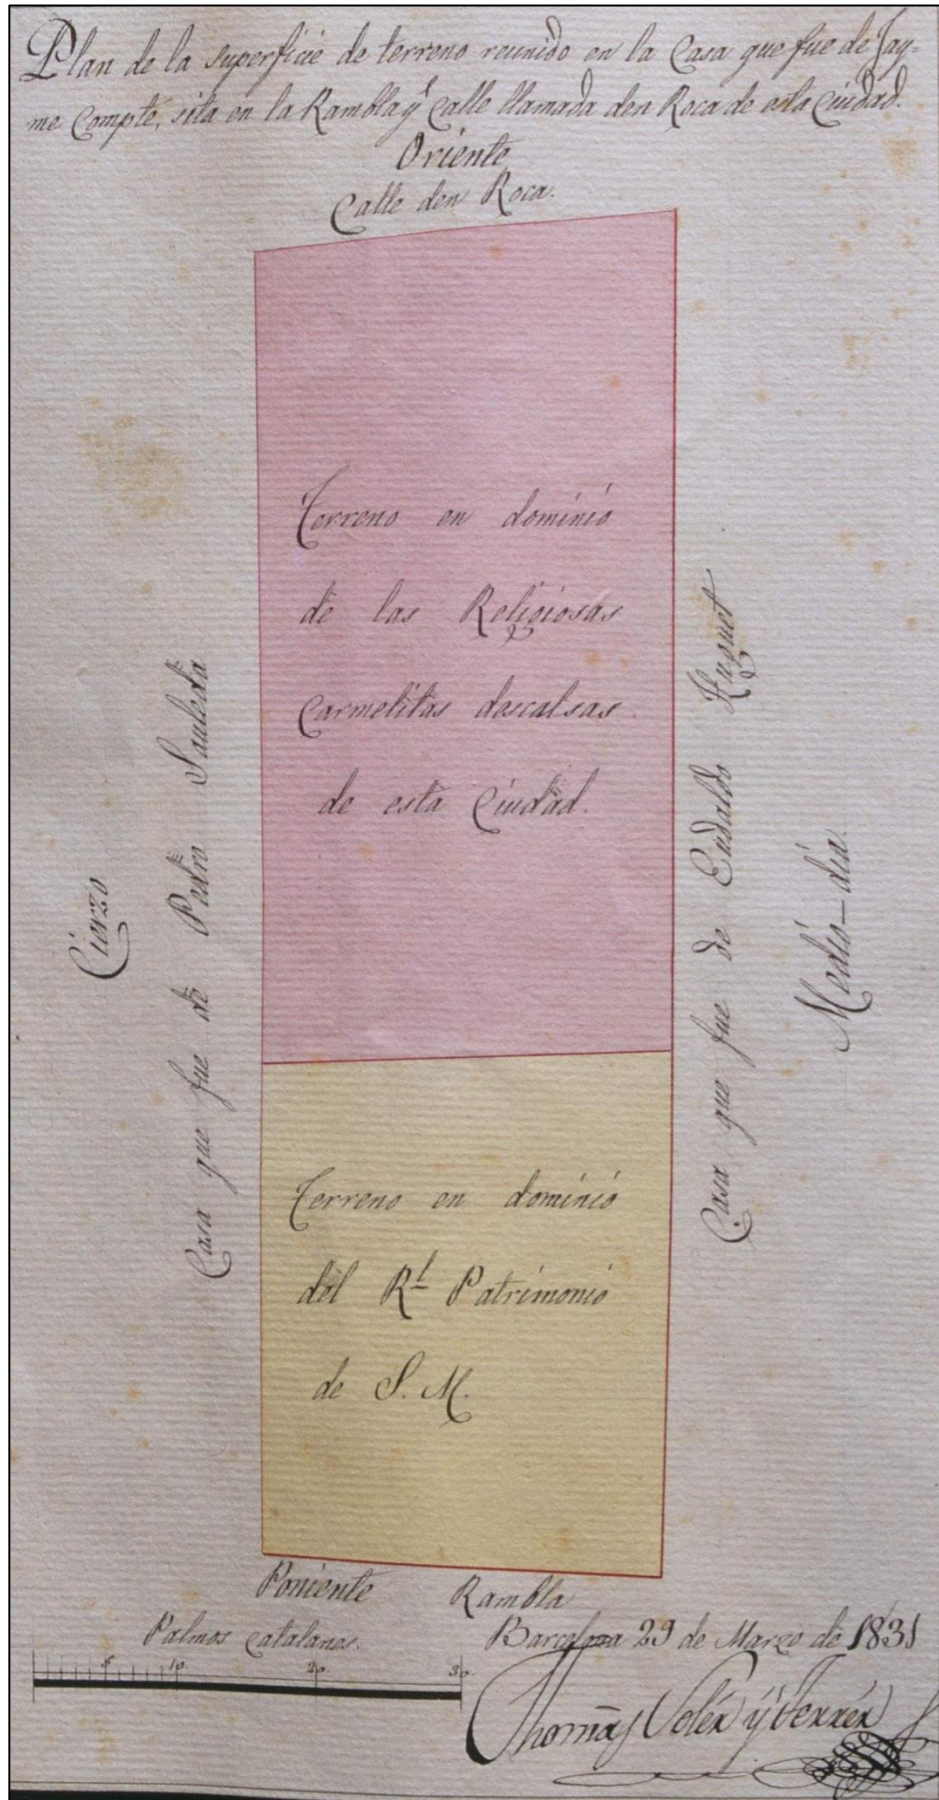 Plan de la superficie de terreno reunido en la Casa que fue de Jay=
me Compte, sita en la Rambla y calle llamada den Roca de esta Ciudad.
Oriente
Calle den Roca.
Terreno en dominio
de las Religiosas
Carmelitas descalsas
de esta Ciudad.
Cierzo
Casa que fue de Pedro Sauleda
Casa que fue de Eudaldo Huguet
Medio-dia.
Terreno en dominio
del Rl Patrimonio
de S. M.
Poniente Rambla
Palmos catalanes.
5 10 20 30.
Barcelona 29 de Marzo de 1831
Thomas Solér y Ferrér